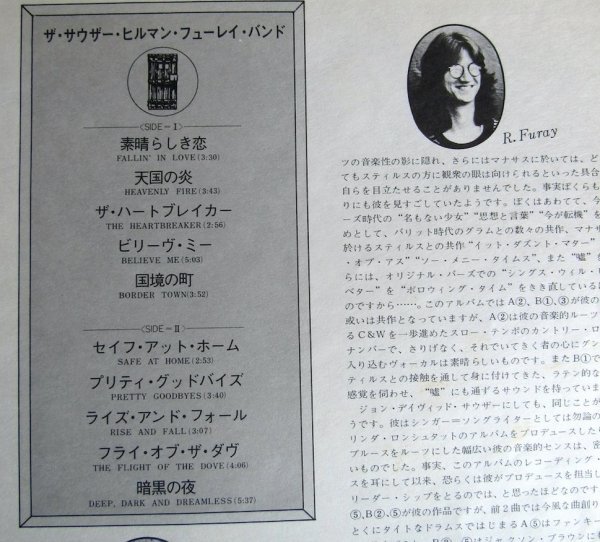 ザ・サウザー・ヒルマン・フューレイ・バンド
〈SIDE－I〉
素晴らしき恋
FALLIN' IN LOVE (3:30)
天国の炎
HEAVENLY FIRE (3:43)
ザ・ハートブレイカー
THE HEARTBREAKER (2:56)
ビリーヴ・ミー
BELIEVE ME (5:03)
国境の町
BORDER TOWN (3:52)
〈SIDE－II〉
セイフ・アット・ホーム
SAFE AT HOME (2:53)
プリティ・グッドバイズ
PRETTY GOODBYES (3:40)
ライズ・アンド・フォール
RISE AND FALL (3:07)
フライ・オブ・ザ・ダヴ
THE FLIGHT OF THE DOVE (4:06)
暗黒の夜
DEEP, DARK AND DREAMLESS (5:37)
R. Furay
ツの音楽性の影に隠れ、さらにはマナサスに於いては、ど
てもスティルスの方に観衆の眼は向けられるといった具合
自らを目立たせることがありませんでした。事実ぼくらも
りにも彼を見すごしていたようです。ぼくはあわてて、今
ーズ時代の“名もない少女”“思想と言葉”“今が転機”を
めとして、バリット時代のグラムとの数々の共作、マナサ
於けるスティルスとの共作“イット・ダズント・マター”
・オブ・アス”“ソー・メニー・タイムス”、また“嘘”を
らには、オリジナル・バーズでの“シングス・ウィル・ビ
ベター”を“ボロウィング・タイム”をきき直しているほ
のですから……。このアルバムではA②、B①、③が彼の
或いは共作となっていますが、A②は彼の音楽的ルーツ
るC&Wを一歩進めたスロー・テンポのカントリー・ロ
ナンバーで、さりげなく、それでいてきく者の心にグン
入り込むヴォーカルは素晴らしいものです。またB①で
ティルスとの接触を通して身に付けてきた、ラテン的な
感覚を伺わせ、“嘘”にも通ずるサウンドを持っていま
ジョン・デイヴィッド・サウザーにしても、同じことが
うです。彼はシンガー＝ソングライターとしては勿論の
リンダ・ロンシュタットのアルバムをプロデュースしたり
ブルースをルーツにした幅広い彼の音楽的センスは、密
いものでした。事実、このアルバムのレコーディング・
スを耳にして以来、恐らくは彼がプロデュースを担当し
リーダー・シップをとるのでは、と思ったほどなのです
⑤、B②、⑤が彼の作品ですが、前2曲では今風な曲創り
とくにタイトなドラムスではじまるA⑤はファンキー